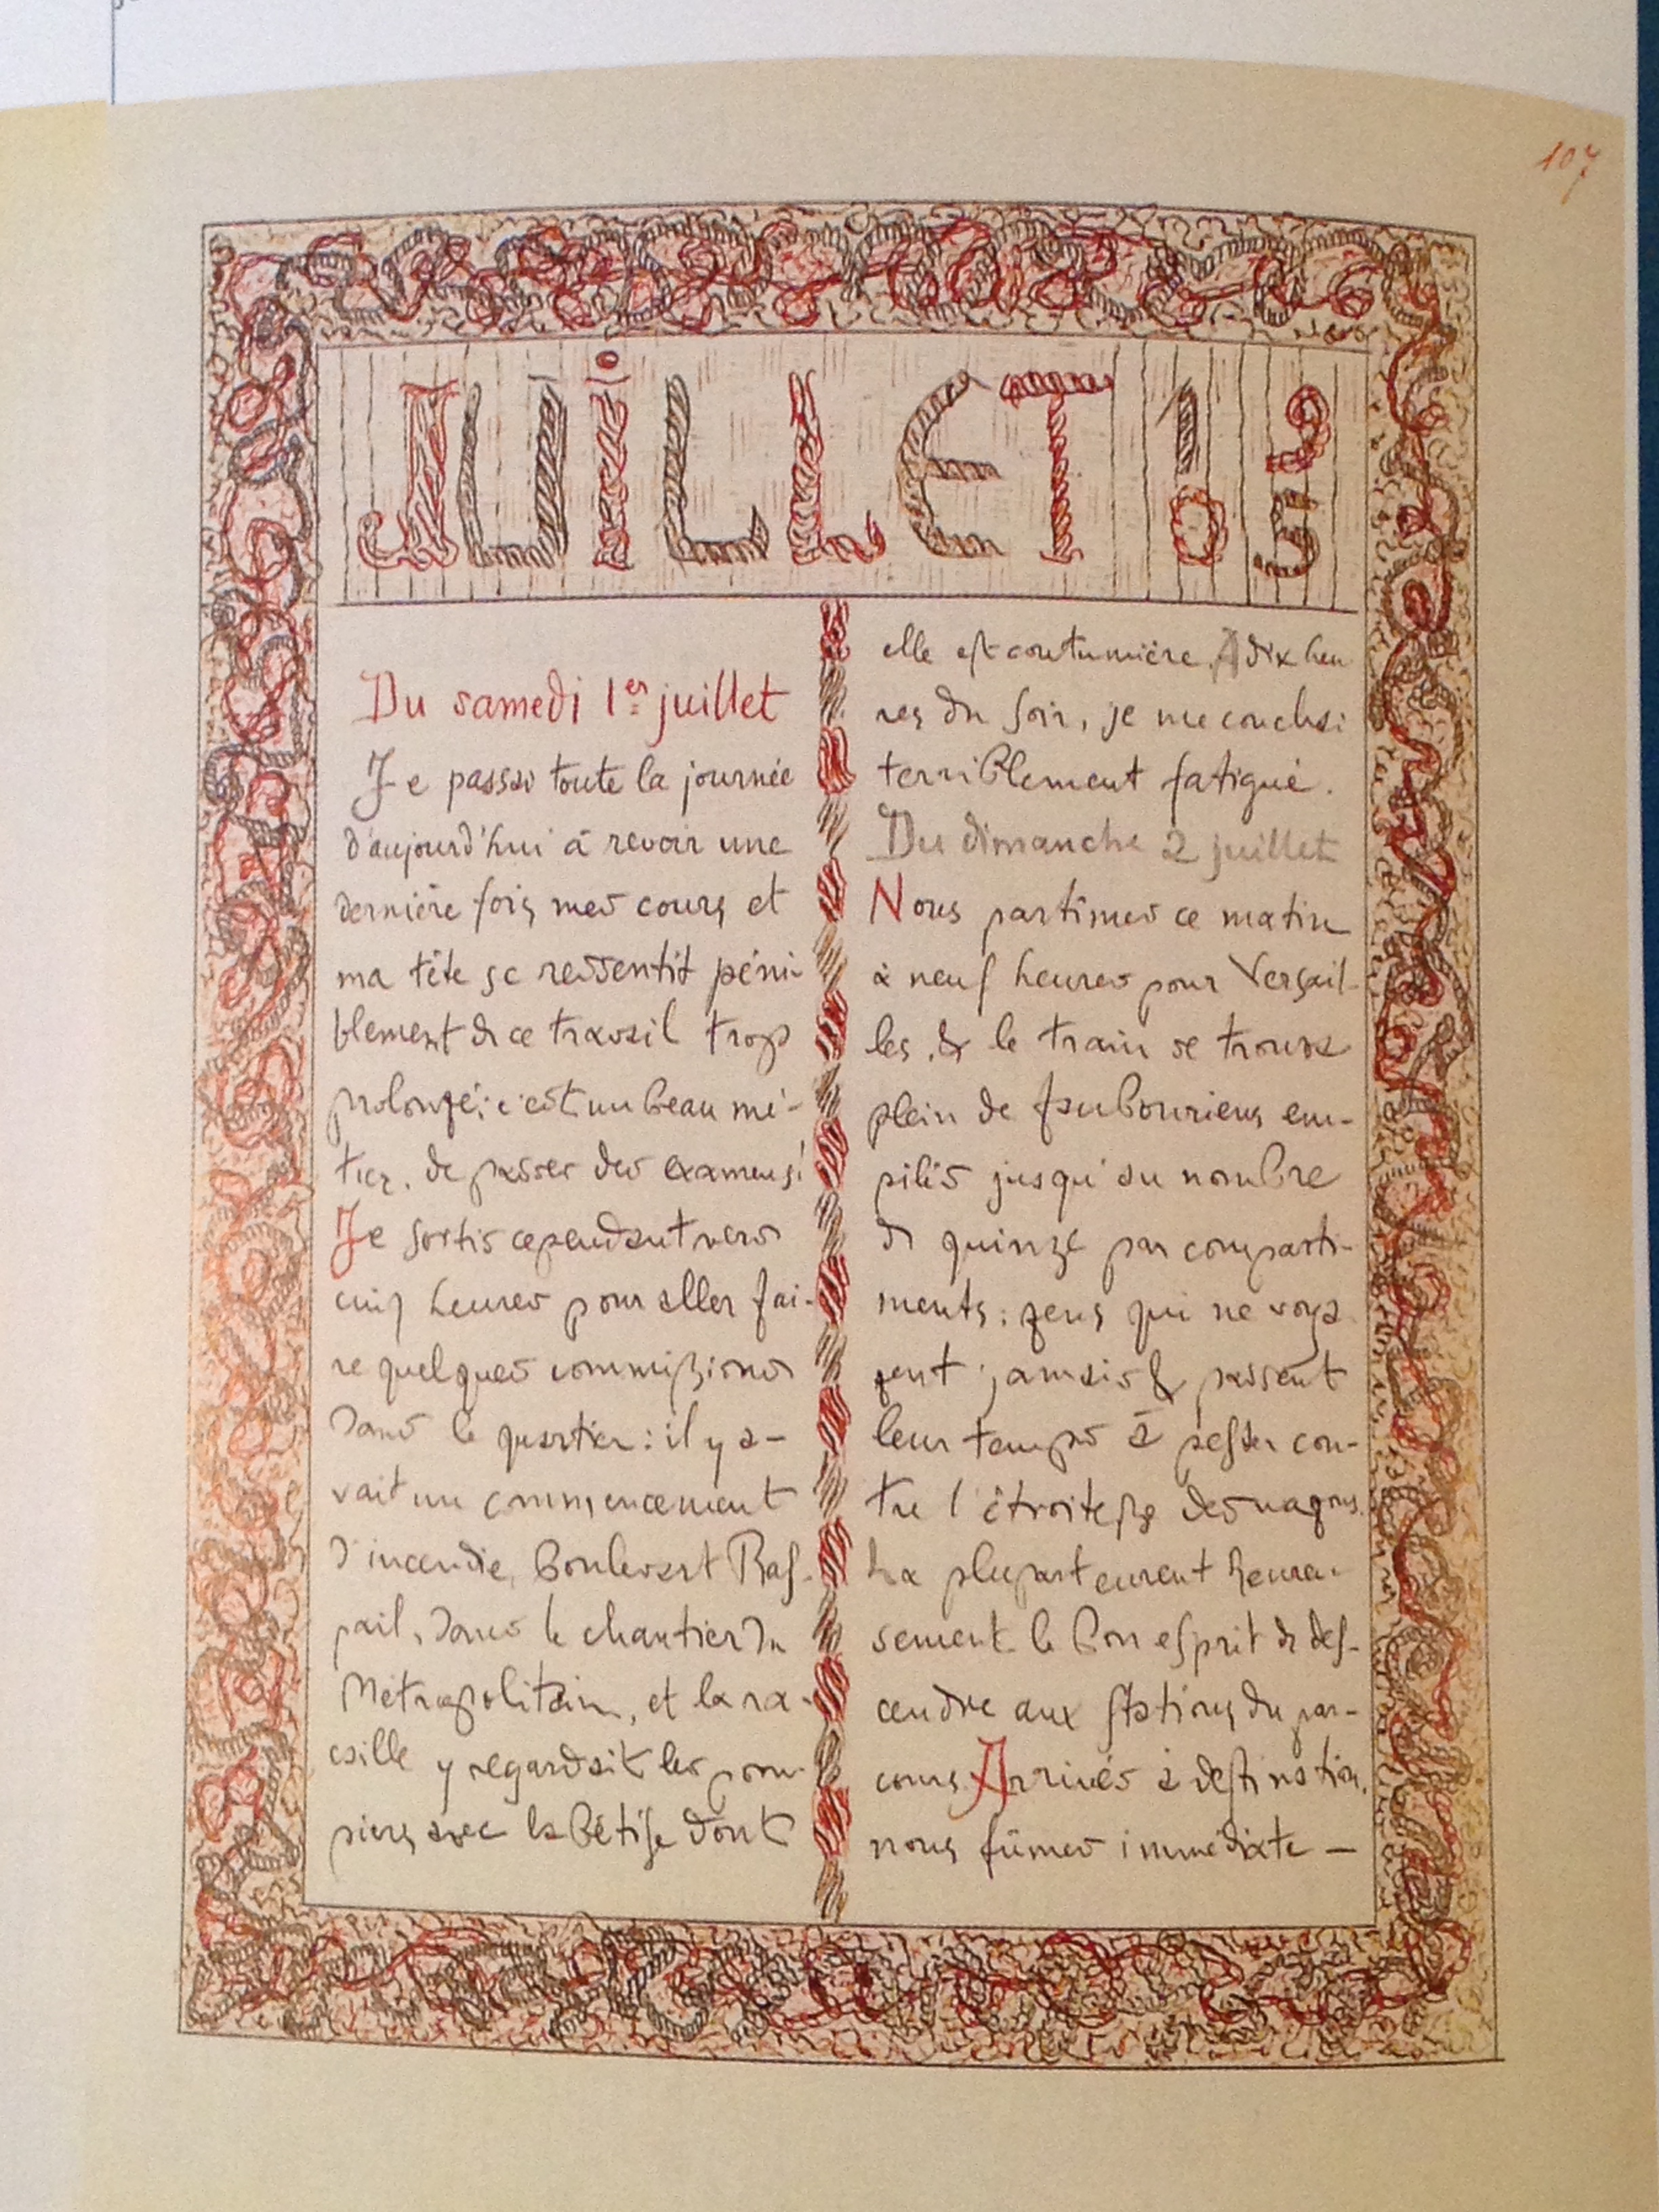 107
JUILLET 1905
Du samedi 1er juillet
Je passai toute la journée
d'aujourd'hui à revoir une
dernière fois mes cours et
ma tête se ressentit péni-
blement de ce travail trop
prolongé; c'est un beau mé-
tier, de passer des examens!
Je sortis cependant vers
cinq heures pour aller fai-
re quelques commissions
dans le quartier: il y a-
vait un commencement
d'incendie, boulevart Ras-
pail, dans le chantier du
Métropolitain, et la ra-
caille y regardait les pom-
piers avec la bêtise dont
elle est coutumière. A dix heu
res du soir, je me couchai
terriblement fatigué.
Du dimanche 2 juillet
Nous partîmes ce matin
à neuf heures pour Versail-
les, & le train se trouva
plein de faubouriens em-
pilés jusqu'au nombre
de quinze par comparti-
ments: gens qui ne voya
gent jamais & passent
leur temps à pester con-
tre l'étroitesse des wagons.
La plupart eurent heureu-
sement le bon esprit de des-
cendre aux stations du par-
cours. Arrivés à destination,
nous fûmes immédiate-